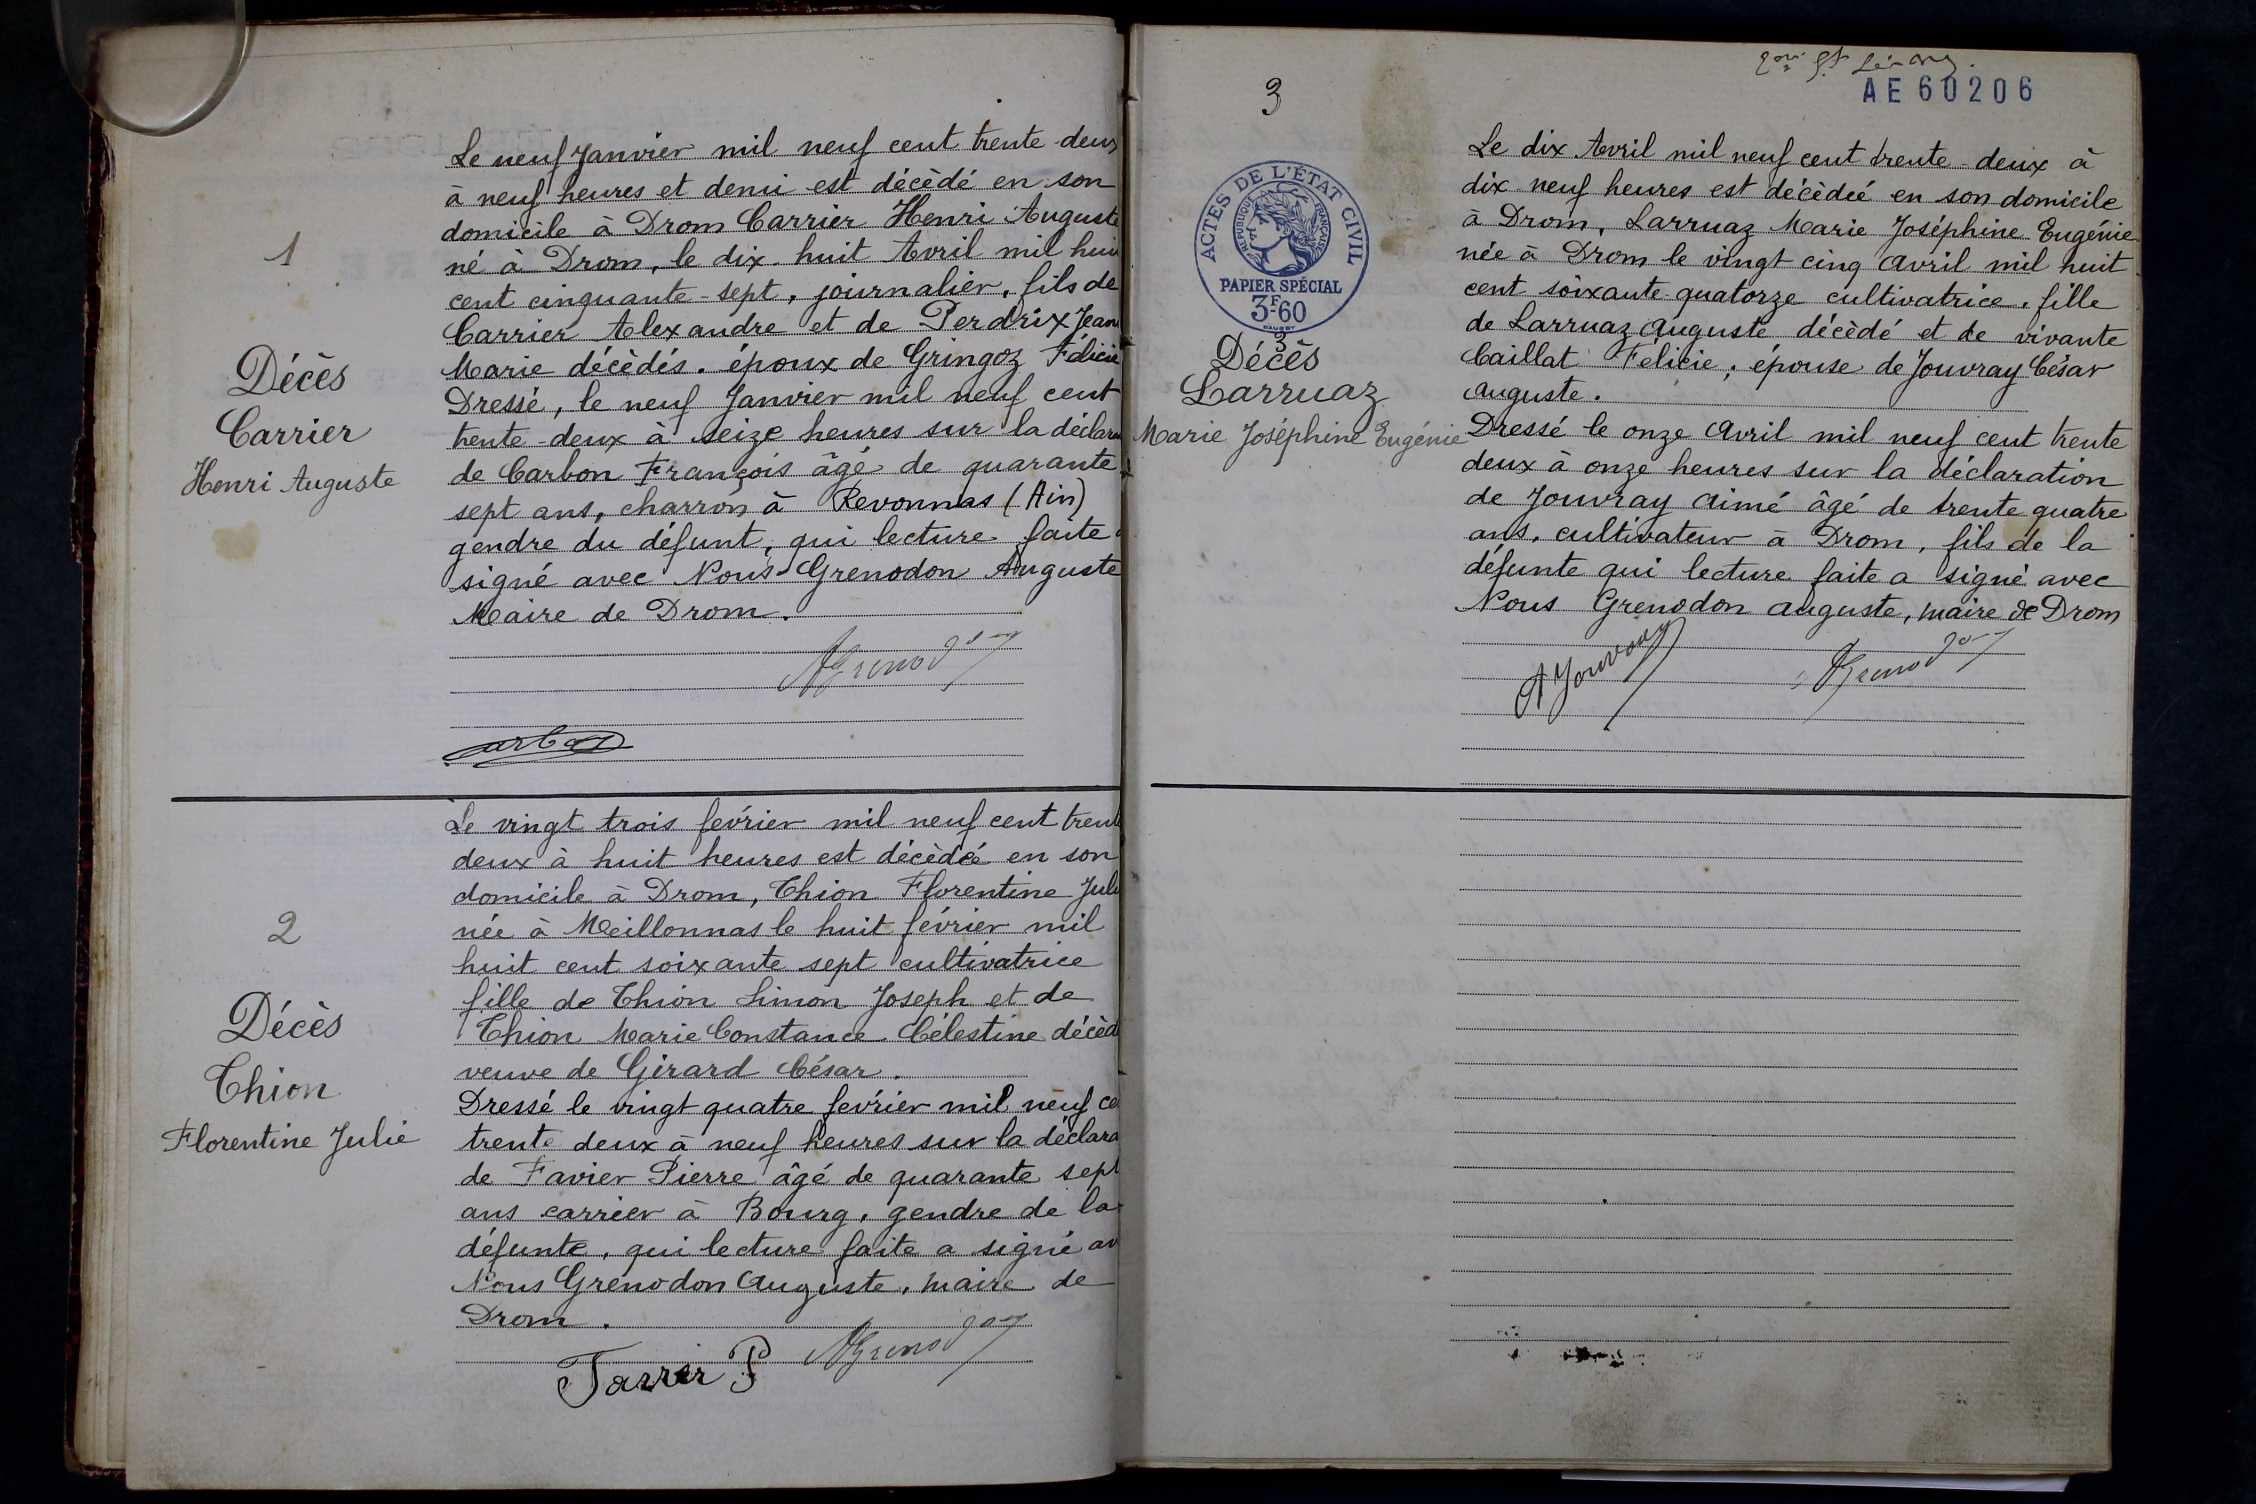 1
Décès
Carrier
Henri Auguste
Le neuf Janvier mil neuf cent trente deux
à neuf heures et demi est décèdé en son
domicile à Drom Carrier Henri Auguste
né à Drom, le dix huit Avril mil hui
cent cinquante-sept, journalier, fils de
Carrier Alexandre et de Perdrix Jean
Marie décèdés. époux de Gringoz Félicie
Dressé, le neuf Janvier mil neuf cent
trente-deux à seize heures sur la déclara
de Carbon François âgé de quarante
sept ans, charron à Revonnas (Ain)
gendre du défunt, qui lecture faite a
signé avec Nous Grenodon Auguste
Maire de Drom.
AGrenodon
2
Décès
Thion
Florentine Julie
Le vingt trois février mil neuf cent trent
deux à huit heures est décèdée en son
domicile à Drom, Thion Florentine Juli
née à Meillonnas le huit février mil
huit cent soixante sept cultivatrice
fille de Thion Simon Joseph et de
Thion Marie Constance Célestine décèd
veuve de Girard César.
Dressé le vingt quatre février mil neuf ce
trente deux à neuf heures sur la déclara
de Favier Pierre âgé de quarante sept
ans carrier à Bourg, gendre de la
défunte, qui lecture faite a signé av
Nous Grenodon Auguste, maire de
Drom.
AGrenodon
3
AE60206
ACTES DE L'ÉTAT CIVIL
RÉPUBLIQUE FRANÇAISE
PAPIER SPÉCIAL
3F60
3
Décès
Larruaz
Marie Joséphine Eugénie
Le dix Avril mil neuf cent trente-deux à
dix neuf heures est décèdée en son domicile
à Drom, Larruaz Marie Joséphine Eugénie
née à Drom le vingt cinq avril mil huit
cent soixante quatorze cultivatrice, fille
de Larruaz Auguste, décèdé et de vivante
Caillat Felicie, épouse de Jouvray César
Auguste.
Dressé le onze Avril mil neuf cent trente
deux à onze heures sur la déclaration
de Jouvray Aimé âgé de trente quatre
ans, cultivateur à Drom, fils de la
défunte qui lecture faite a signé avec
Nous Grenodon Auguste, maire de Drom
A Jouvray
AGrenodon